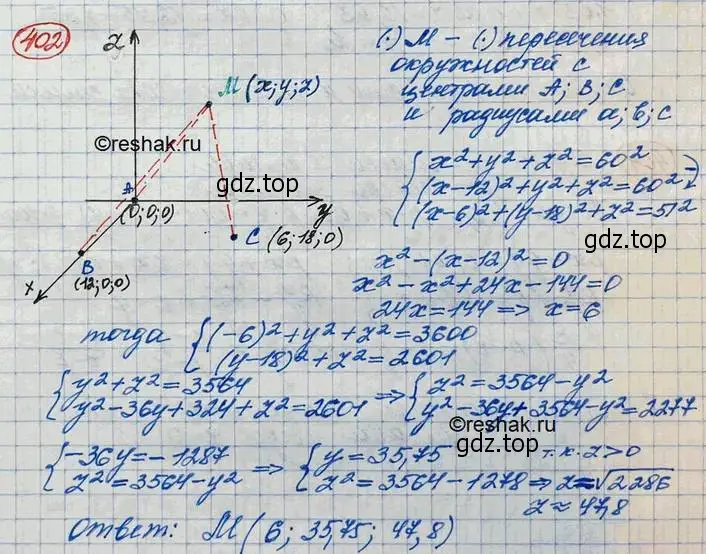 402
z
M (x; y; z)
A
(0; 0; 0)
y
C (6; 18; 0)
B
(12; 0; 0)
x
©reshak.ru
gdz.top
(·) M – (·) пересечения
окружностей с
центрами A; B; C
и радиусами a; b; c
{ x² + y² + z² = 60²
(x-12)² + y² + z² = 60² ⇒
(x-6)² + (y-18)² + z² = 51²
gdz.top
x² - (x-12)² = 0
x² - x² + 24x - 144 = 0
24x = 144 ⇒ x = 6
тогда { (-6)² + y² + z² = 3600
(y-18)² + z² = 2601
{ y² + z² = 3564
y² - 36y + 324 + z² = 2601 ⇒ { z² = 3564 - y²
y² - 36y + 3564 - y² = 2277
©reshak.ru
gdz.top
{ -36y = -1287
z² = 3564 - y² ⇒ { y = 35,75 т.к. z > 0
z² = 3564 - 1278 ⇒ z = √2286
z ≈ 47,8
Ответ: M (6; 35,75; 47,8)